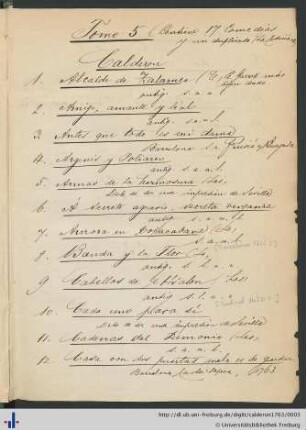 Tomo 5 (Contiene 17 Comedias
y un duplicado
Calderon
1. Alcalde de Zalamea (El
antig. s. a. n. l.
2. Amigo, amante y leal
antig. s. a. n. l.
3. Antes que todo es mi dama
Barcelona
4. Argenis y Poliarco
s. a. n. l.
5. Armas de la hermosura (Las)
de una impresión de Sevilla
6. A secreto agravio, secreta venganza
antig. s. a. n. l.
7. Aurora en Copacavana (La)
s. a. n. l.
8. Banda y la Flor (La)
antig. s. l.
9. Cabellos de Absalon (Los)
antig s. l. n. a
10. Cada uno para si
de una impresión de Sevilla
11. Cadenas del Demonio (Las)
s. a. n. l.
12. Casa con dos puertas mala es de guardar
Barcelona, 1763
http://dl.ub.uni-freiburg.de/diglit/calderon1763/0003
© Universitätsbibliothek Freiburg